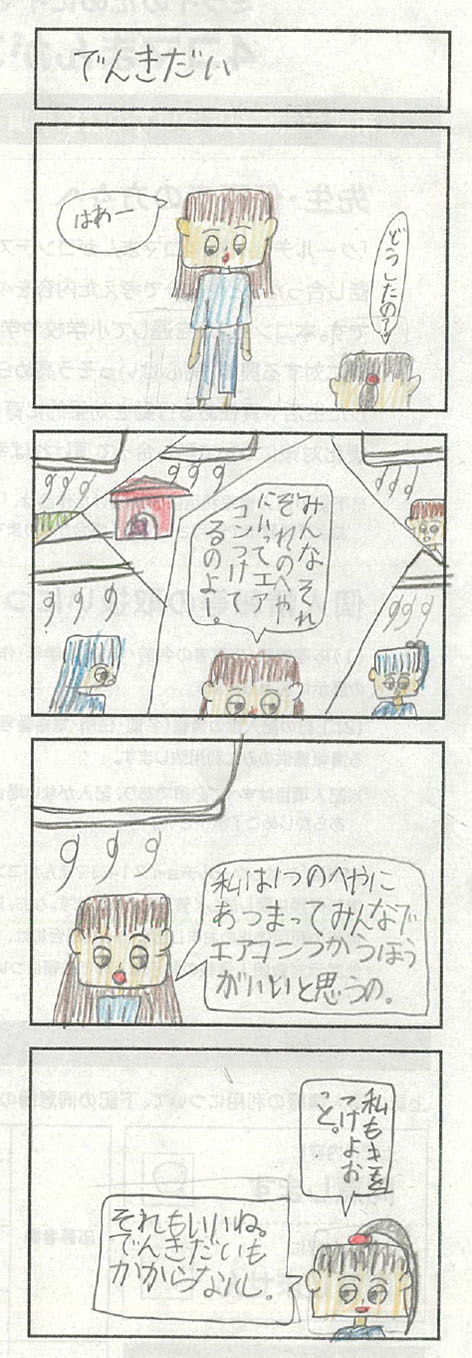 でんきだい
はあー
どうしたの?
みんなそれ
ぞれのへや
にいってエア
コンつけて
るのよ。
私は1つのへやに
あつまってみんなで
エアコンつかうほう
がいいと思うの。
私もきを
つけよお
と。
それもいいね。
でんきだいも
かからないし。